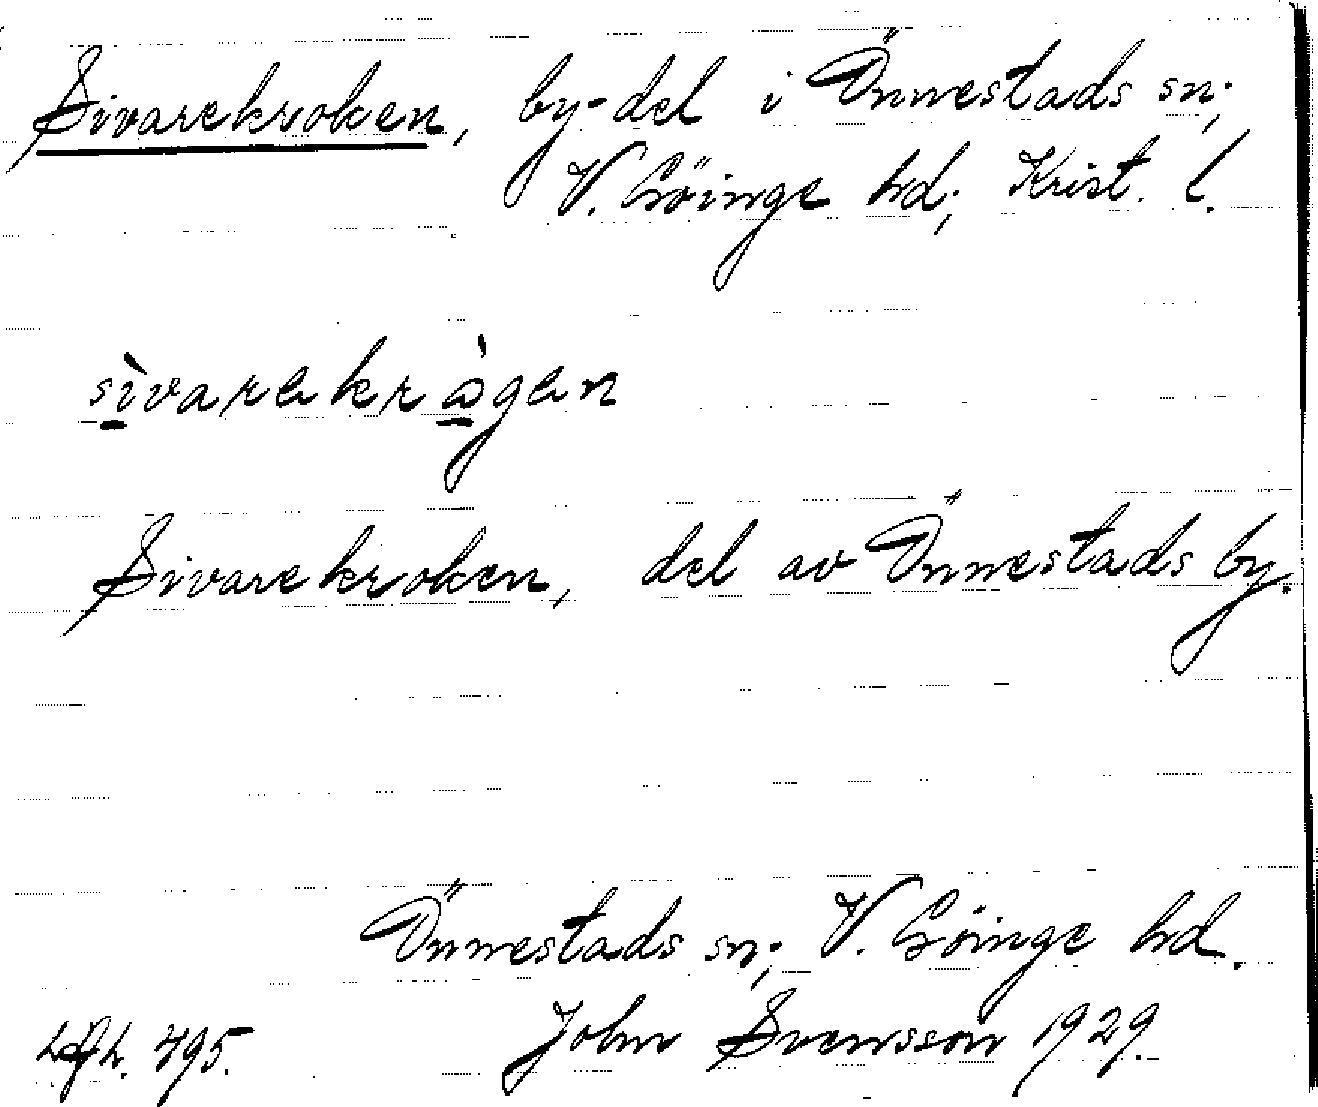 Sivarekroken, by-del i Önnestads sn;
V. Göinge hd; Krist. l.
sìvarekrågen
Sivarekroken, del av Önnestads by.
Önnestads sn; V. Göinge hd.
John Svensson 1929.
495.